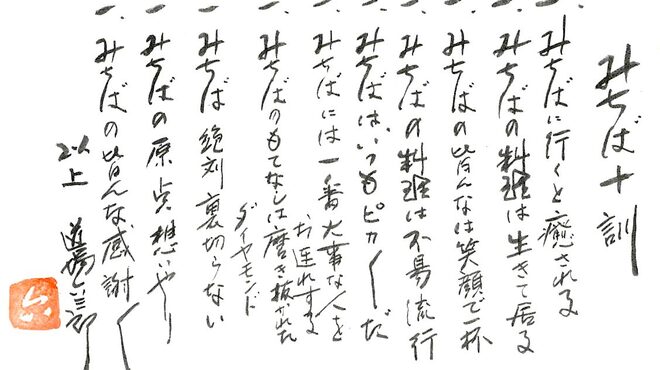 みちば十訓
一、みちばに行くと癒される
一、みちばの料理は生きて居る
一、みちばの皆んなは笑顔で一杯
一、みちばの料理は不易流行
一、みちばは、いつもピカ〳〵だ
一、みちばには一番大事な人を
お連れする
一、みちばのもてなしは磨き抜かれた
ダイヤモンド
一、みちば絶対裏切らない
一、みちばの原点想いやり
一、みちばの皆んな感謝〳〵
以上
道場六三郎
六